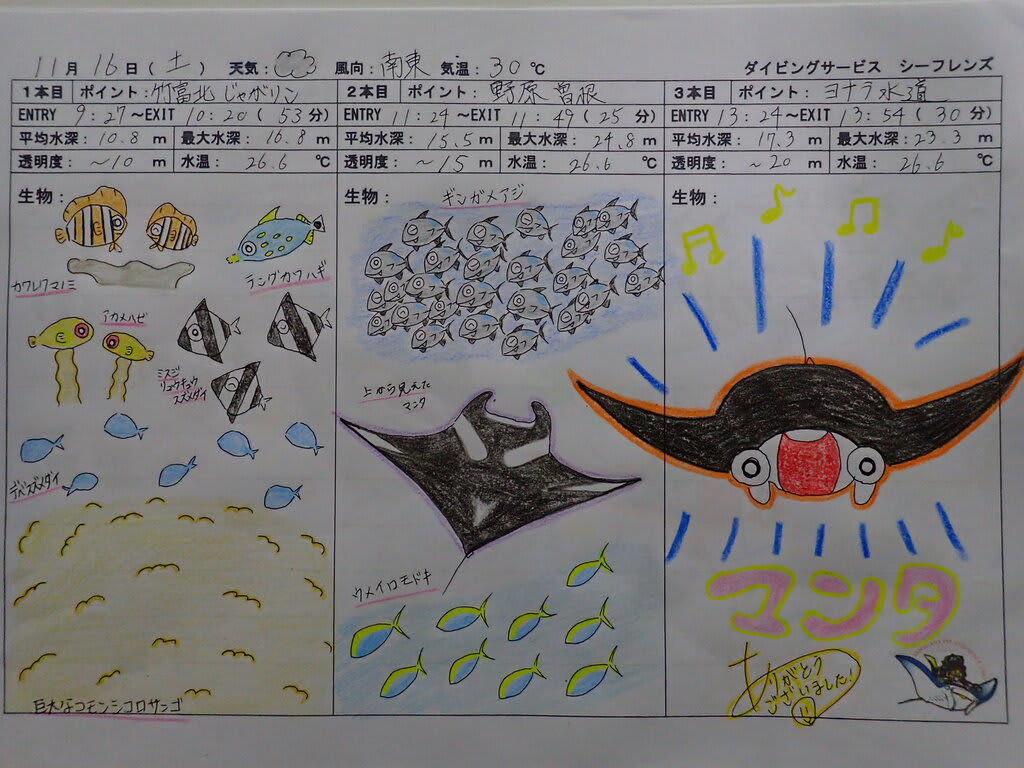 11月16日(土) 天気: 風向:南東 気温:30℃ ダイビングサービス シーフレンズ
1本目 ポイント:竹富北じゃがリン
ENTRY 9:27~EXIT 10:20(53分)
平均水深:10.8m 最大水深:16.8m
透明度:~10m 水温:26.6℃
生物:
カクレクマノミ
テングカワハギ
アカメハゼ
ミスジ
リュウキュウ
スズメダイ
デバスズメダイ
巨大なコモンシコロサンゴ
2本目 ポイント:野原曽根
ENTRY 11:24~EXIT 11:49(25分)
平均水深:15.5m 最大水深:24.8m
透明度:~15m 水温:26.6℃
生物:
ギンガメアジ
上から見えた
マンタ
ウメイロモドキ
3本目 ポイント:ヨナラ水道
ENTRY 13:24~EXIT 13:54(30分)
平均水深:17.3m 最大水深:23.3m
透明度:~20m 水温:26.6℃
生物:
マンタ
ありがとう
ございました!